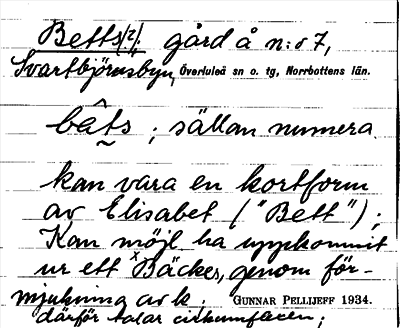 Betts(?/: gård å n:o 7,
Svartbjörnsbyn, Överluleå sn o. tg, Norrbottens län.
bâts ; sällan numera.
kan vara en kortform
av Elisabet ("Bett");
Kan möjl. ha uppkommit
ur ett ˣBäckes, genom för-
mjukning av k. GUNNAR PELLIJEFF 1934.
därför talar cirkumflexen;